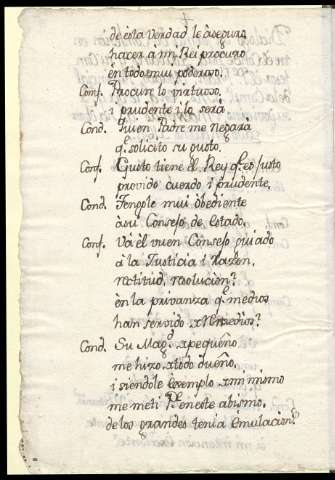 de esta verdad le aseguro
hacer a mi Rei procuro
en todo mui poderoso,
Conf. Procurar lo virtuoso,
i prudente i lo será
Cond. Quien Padre me negará
q.e solicito su gusto.
Conf. Gusto tiene el Rey q.e es justo
provido cuerdo i prudente,
Cond. Tengole mui obediente
à su Consejo de estado.
Conf. Và el vuen Consejo guiado
à la Justicia i Razon,
rectitud, resolucion?
en la privanza q.e medios
han servido remedios?
Cond. Su Mag.d pequeño
me hizo todo dueño,
i siendole exemplo mismo
me meti P.e en este abismo,
de los grandes tenia emulacion.